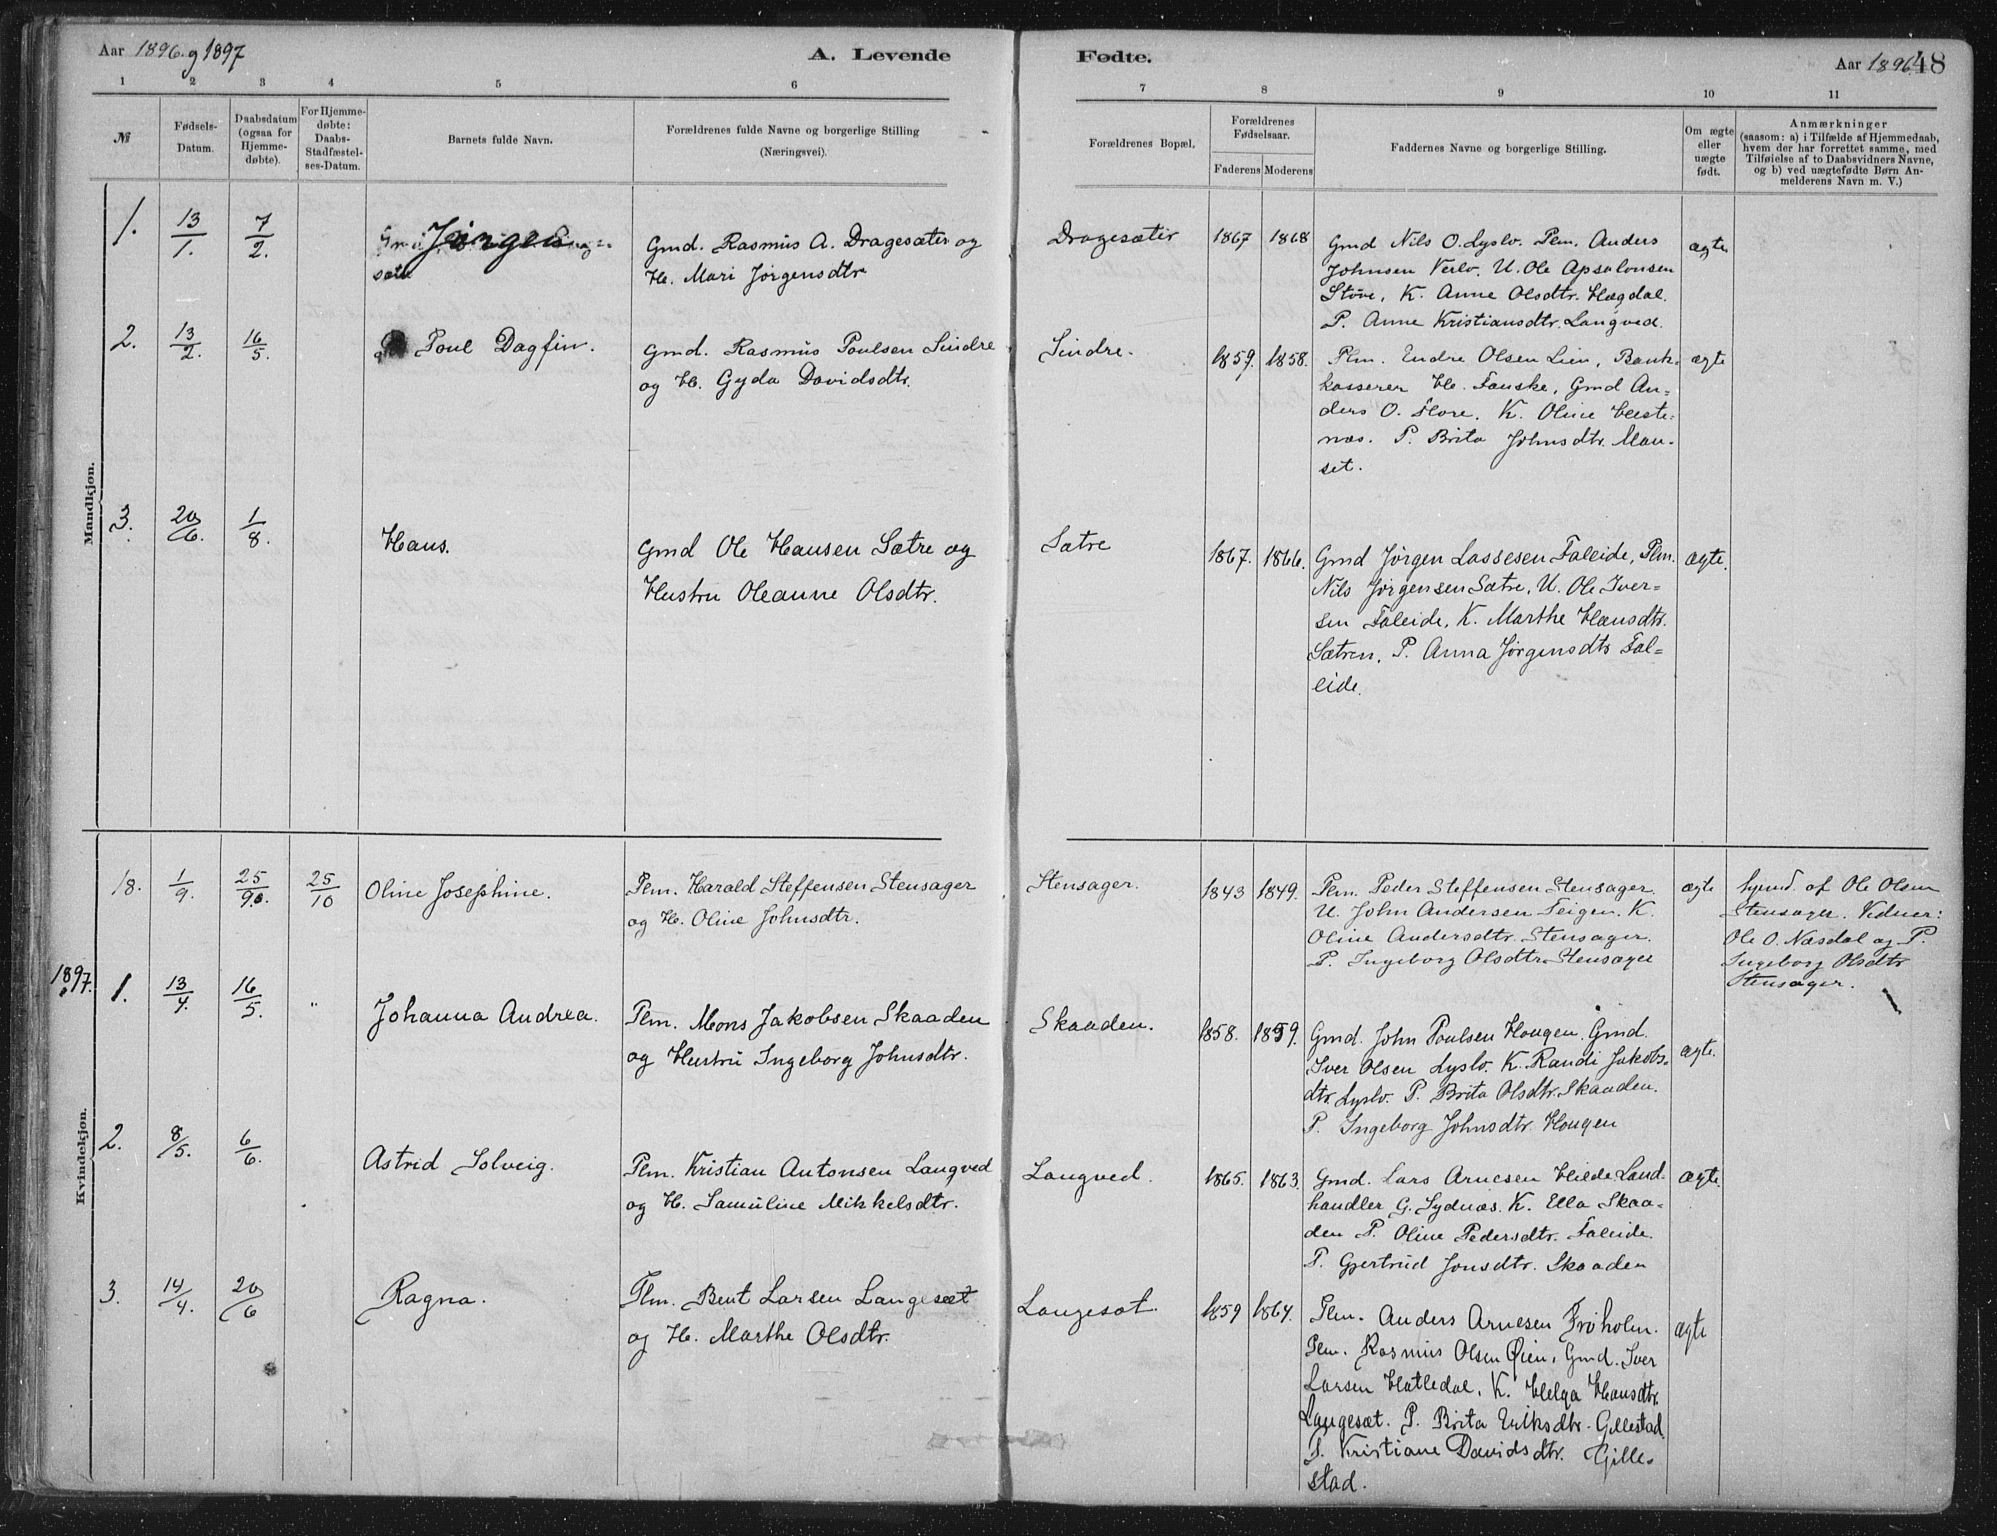 Aar 1896. og 1897
A. Levende
Fødte.
Aar 1896.
48
1 2 3 4 5 6 7 8 9 10 11
№
Fødsels-
Datum.
Daabsdatum
(ogsaa for
Hjemme-
døbte).
For Hjemme-
døbte:
Daabs-
Stadfæstel-
ses-Datum.
Barnets fulde Navn.
Forældrenes fulde Navne og borgerlige Stilling
(Næringsvei).
Forældrenes Bopæl.
Forældrenes
Fødselsaar.
Faderens Moderens
Faddernes Navne og borgerlige Stilling.
Om ægte
eller
uægte
født.
Anmærkninger
(saasom: a) i Tilfælde af Hjemmedaab,
hvem der har forrettet samme, med
Tilføielse af to Daabsvidners Navne,
og b) ved uægtefødte Børn An-
melderens Navn m. V.)
Mandkjøn.
1. 13/1. 7/2. Jørgen
Gmd. Rasmus A. Dragesæter og
H. Mari Jørgensdtr
Dragesæter 1867 1868
Gmd Nils O. Lyslo. Plm. Anders
Johnsen Verlo. U. Ole Apsalonsen
Støve, K. Anne Olsdtr. Hægdal.
P. Anne Kristiansdtr. Langved.
ægte
2. 13/2. 16/5. Poul Dagfin.
Gmd. Rasmus Poulsen Sindre
og H. Gyda Davidsdtr.
Sindre. 1859. 1858.
Plm. Endre Olsen Lien, Bank-
kasserer H. Fauske, Gmd An-
ders O. Flore. K. Oline Heste-
næs. P. Brita Johnsdtr. Mau-
set.
ægte
3. 20/6. 1/8. Hans.
Gmd Ole Hansen Sætre og
Hustru Oleanne Olsdtr.
Sætre 1867. 1866.
Gmd Jørgen Lassesen Faleide, Plm.
Nils Jørgensen Sætre, U. Ole Iver-
sen Faleide, K. Marthe Hansdtr.
Sætren, P. Anna Jørgensdtr Fal-
eide.
ægte.
Kvindekjøn.
18. 1/9. 25/9. 25/10 Oline Josephine.
Plm. Harald Steffensen Stensager
og H. Oline Johnsdtr.
Stensager. 1843 1849.
Plm. Peder Steffensen Stensager.
U. John Andersen Feigen. K.
Oline Andersdtr. Stensager.
P. Ingeborg Olsdtr. Stensager
ægte
hjmd. af Ole Olsen
Stensager. Vidner:
Ole O. Næsdal og P.
Ingeborg Olsdtr
Stensager.
1897.
1. 13/4. 16/5. " Johanna Andrea.
Plm. Mons Jakobsen Skaaden
og Hustru Ingeborg Johnsdtr.
Skaaden. 1858. 1859.
Gmd. John Poulsen Hougen. Gmd.
Iver Olsen Lyslo. K. Randi Jakobs-
dtr Lyslo. P. Brita Olsdtr. Skaaden.
P. Ingeborg Johnsdtr. Hougen
ægte.
2. 8/5. 6/6. Astrid Solveig.
Plm. Kristian Antonsen Langved
og H. Samuline Mikkelsdtr.
Langved. 1865. 1863.
Gmd. Lars Arnesen Hilde Land-
handler G. Sydnæs. K. Ella Skaa-
den P. Oline Pedersdtr. Faleide.
P. Gjertrud Jonsdtr. Skaaden
ægte.
3. 14/4. 20/6 Ragna.
Plm. Bent Larsen Langesæt
og H. Marthe Olsdtr.
Langesæt. 1859 1864.
Plm. Anders Arnesen Frøholm.
Plm. Rasmus Olsen Øien, Gmd. Iver
Larsen Hatledal, K. Helga Hansdtr.
Langesæt. P. Brita Eriksdtr. Gillestad.
P. Kristiane Davidsdtr. Gille-
stad.
ægte